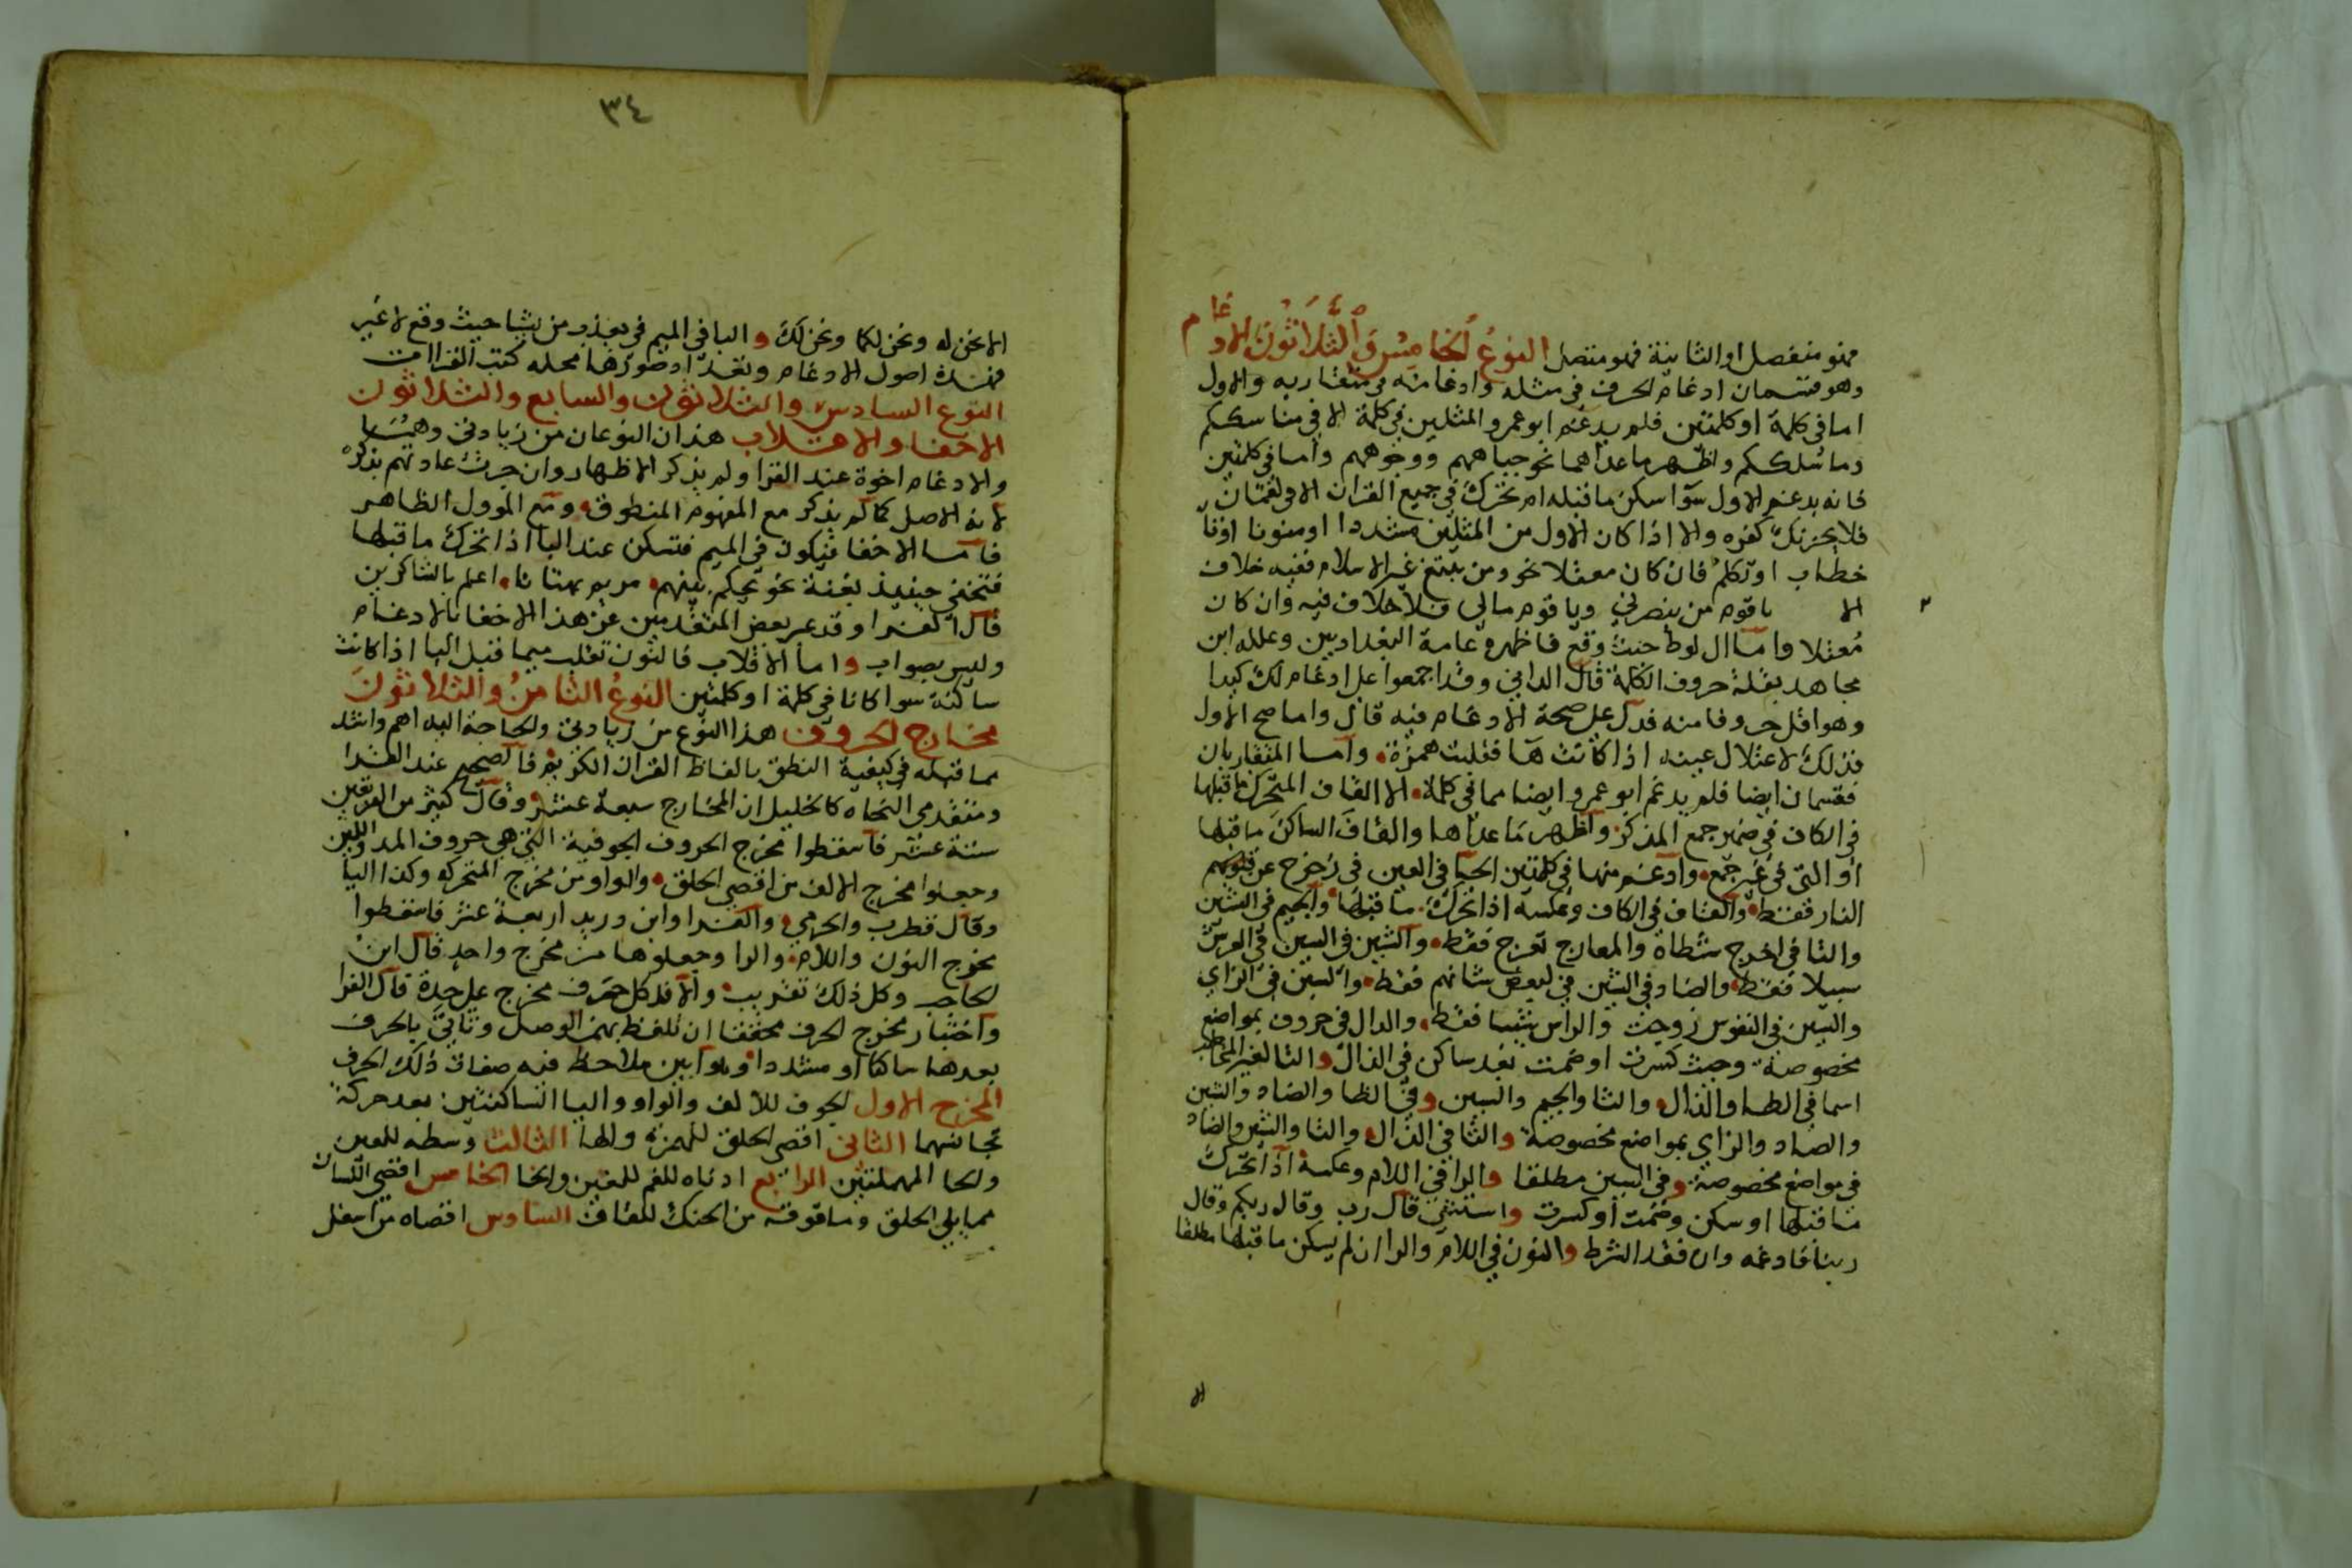 فهو منفصل او الثانية فهو متصل النوع الخامس والثلاثون الادغام
وهو قسمان ادغام الحرف في مثله وادغامه في متقاربه والاول
اما في كلمة او كلمتين فلم يدغم ابو عمرو المثلين في كلمة الا في مناسككم
وما سلككم واظهر ما عداهما نحو جباههم ووجوههم واما في كلمتين
فانه يدغم الاول سوا سكن ما قبله ام تحرك في جميع القران الا في لقمان
فلا يحزنك كفره والا اذا كان الاول من المثلين مشددا او منونا اوتا
خطاب او تكلم فان كان معتلا نحو ومن يبتغ غير الاسلام ففيه خلاف
الا يا قوم من ينصرني ويا قوم مالي فلا خلاف فيه وان كان
معتلا واما ال لوط حيث وقع فاظهره عامة البغداديين وعلله ابن
مجاهد بقلة حروف الكلمة قال الداني وقد اجمعوا على ادغام لك كيدا
وهو اقل حروفا منه فدل على صحة الادغام فيه قال واما صح الاول
فذلك لاعتلال عينه اذ كانت ها فقلبت همزة وأما المتقاربان
فقسمان ايضا فلم يدغم ابو عمرو ايضا مما في كلمة الا القاف المتحرك ما قبلها
في الكاف في ضمير جمع المذكر وأظهر ما عداها والقاف الساكن ما قبلها
أو التي في غير جمع وأدغم منها في كلمتين الحا في العين في زحزح عن
النار فقط والقاف في الكاف وعكسه اذا تحرك ما قبلها والجيم في الشين
والتا في اخرج شطاه والمعارج تعرج فقط والشين في السين في العرش
سبيلا فقط والضاد في الشين في لبعض شانهم فقط والسين في الزاي
والسين في النفوس زوجت والراس شيبا فقط والدال في حروف بمواضع
مخصوصة وحيث كسرت او ضمت بعد ساكن في الدال والتا لغير
اسما في الطا والذال والثا والجيم والسين وفي الظا والضاد والشين
والصاد والزاي بمواضع مخصوصة والثا في الذال والتا والشين والضاد
في مواضع مخصوصة وفي السين مطلقا والرا في اللام وعكسه اذا تحرك
ما قبلها او سكن وضمت أو كسرت واستثنى قال رب وقال ربكم وقال
ربنا فادغمه وان فقد الشرط والنون في اللام والرا ان لم يسكن ما قبلها مطلقا
الا
٣٤
الا نحن له ونحن لكما ونحن لك والبا في الميم في يعذب من يشا حيث وقع لا غير
فهذه اصول الادغام وتعداد صورها محله كتب القراات
النوع السادس والثلاثون والسابع والثلاثون
الاخفا والاقلاب هذان النوعان من زيادتي وهما
والادغام اخوة عند القرا ولم يذكر الاظهار وان جرت عادتهم بذكره
لانه الاصل كما لم يذكر مع المفهوم المنطوق ومع المؤول الظاهر
فأما الاخفا فيكون في الميم فتسكن عند البا اذا تحرك ما قبلها
فتخفى حينئذ بغنة نحو يحكم بينهم مريم بهتانا اعلم بالشاكرين
قال القرا وقد عبر بعض المتقدمين عن هذا الاخفا بالادغام
وليس بصواب واما الاقلاب فالنون تقلب ميما قبل البا اذا كانت
ساكنة سوا كانا في كلمة او كلمتين النوع الثامن والثلاثون
مخارج الحروف هذا النوع من زيادتي والحاجة اليه اهم واشد
مما قبله في كيفية النطق بالفاظ القران الكريم فالصحيح عند القرا
ومتقدمي النحاه كالخليل ان المخارج سبعة عشر وقال كثير من الفريقين
ستة عشر فأسقطوا مخرج الحروف الجوفية التي هي حروف المد واللين
وجعلوا مخرج الالف من اقصى الحلق والواو من مخرج المتحركه وكذا اليا
وقال قطرب والجرمي والفرا وابن دريد اربعة عشر فاسقطوا
مخرج النون واللام والرا وجعلوها من مخرج واحد قال ابن
الحاجب وكل ذلك تقريب والا فلكل حرف مخرج على حدة قال القرا
واختبار مخرج الحرف محققا ان تلفظ بهمز الوصل وتاتي بالحرف
بعدها ساكنا او مشددا وهو ابين ملاحظ فيه صفات ذلك الحرف
المخرج الاول الجوف للالف والواو واليا الساكنتين بعد حركة
تجانسهما الثاني اقصى الحلق للهمزة والها الثالث وسطه للعين
والحا المهملتين الرابع ادناه للفم للغين والخا الخامس اقصى اللسان
مما يلي الحلق وما فوقه من الحنك للقاف السادس اقصاه من اسفل